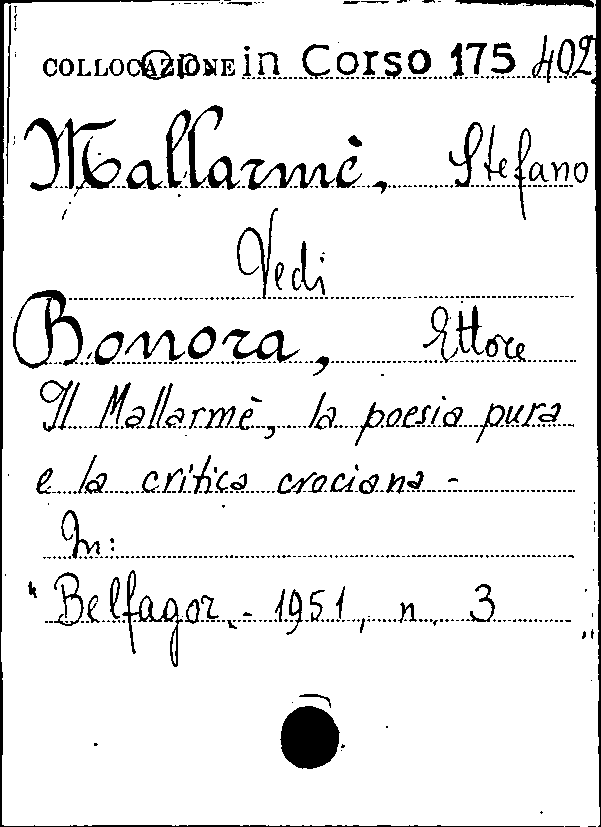 COLLOCAZIONE Op. in Corso 175 402
Mallarmè, Stefano
Vedi
Bonora, Ettore
Il Mallarmè, la poesia pura
e la critica crociana -
In:
"Belfagor, - 1951, n. 3 "